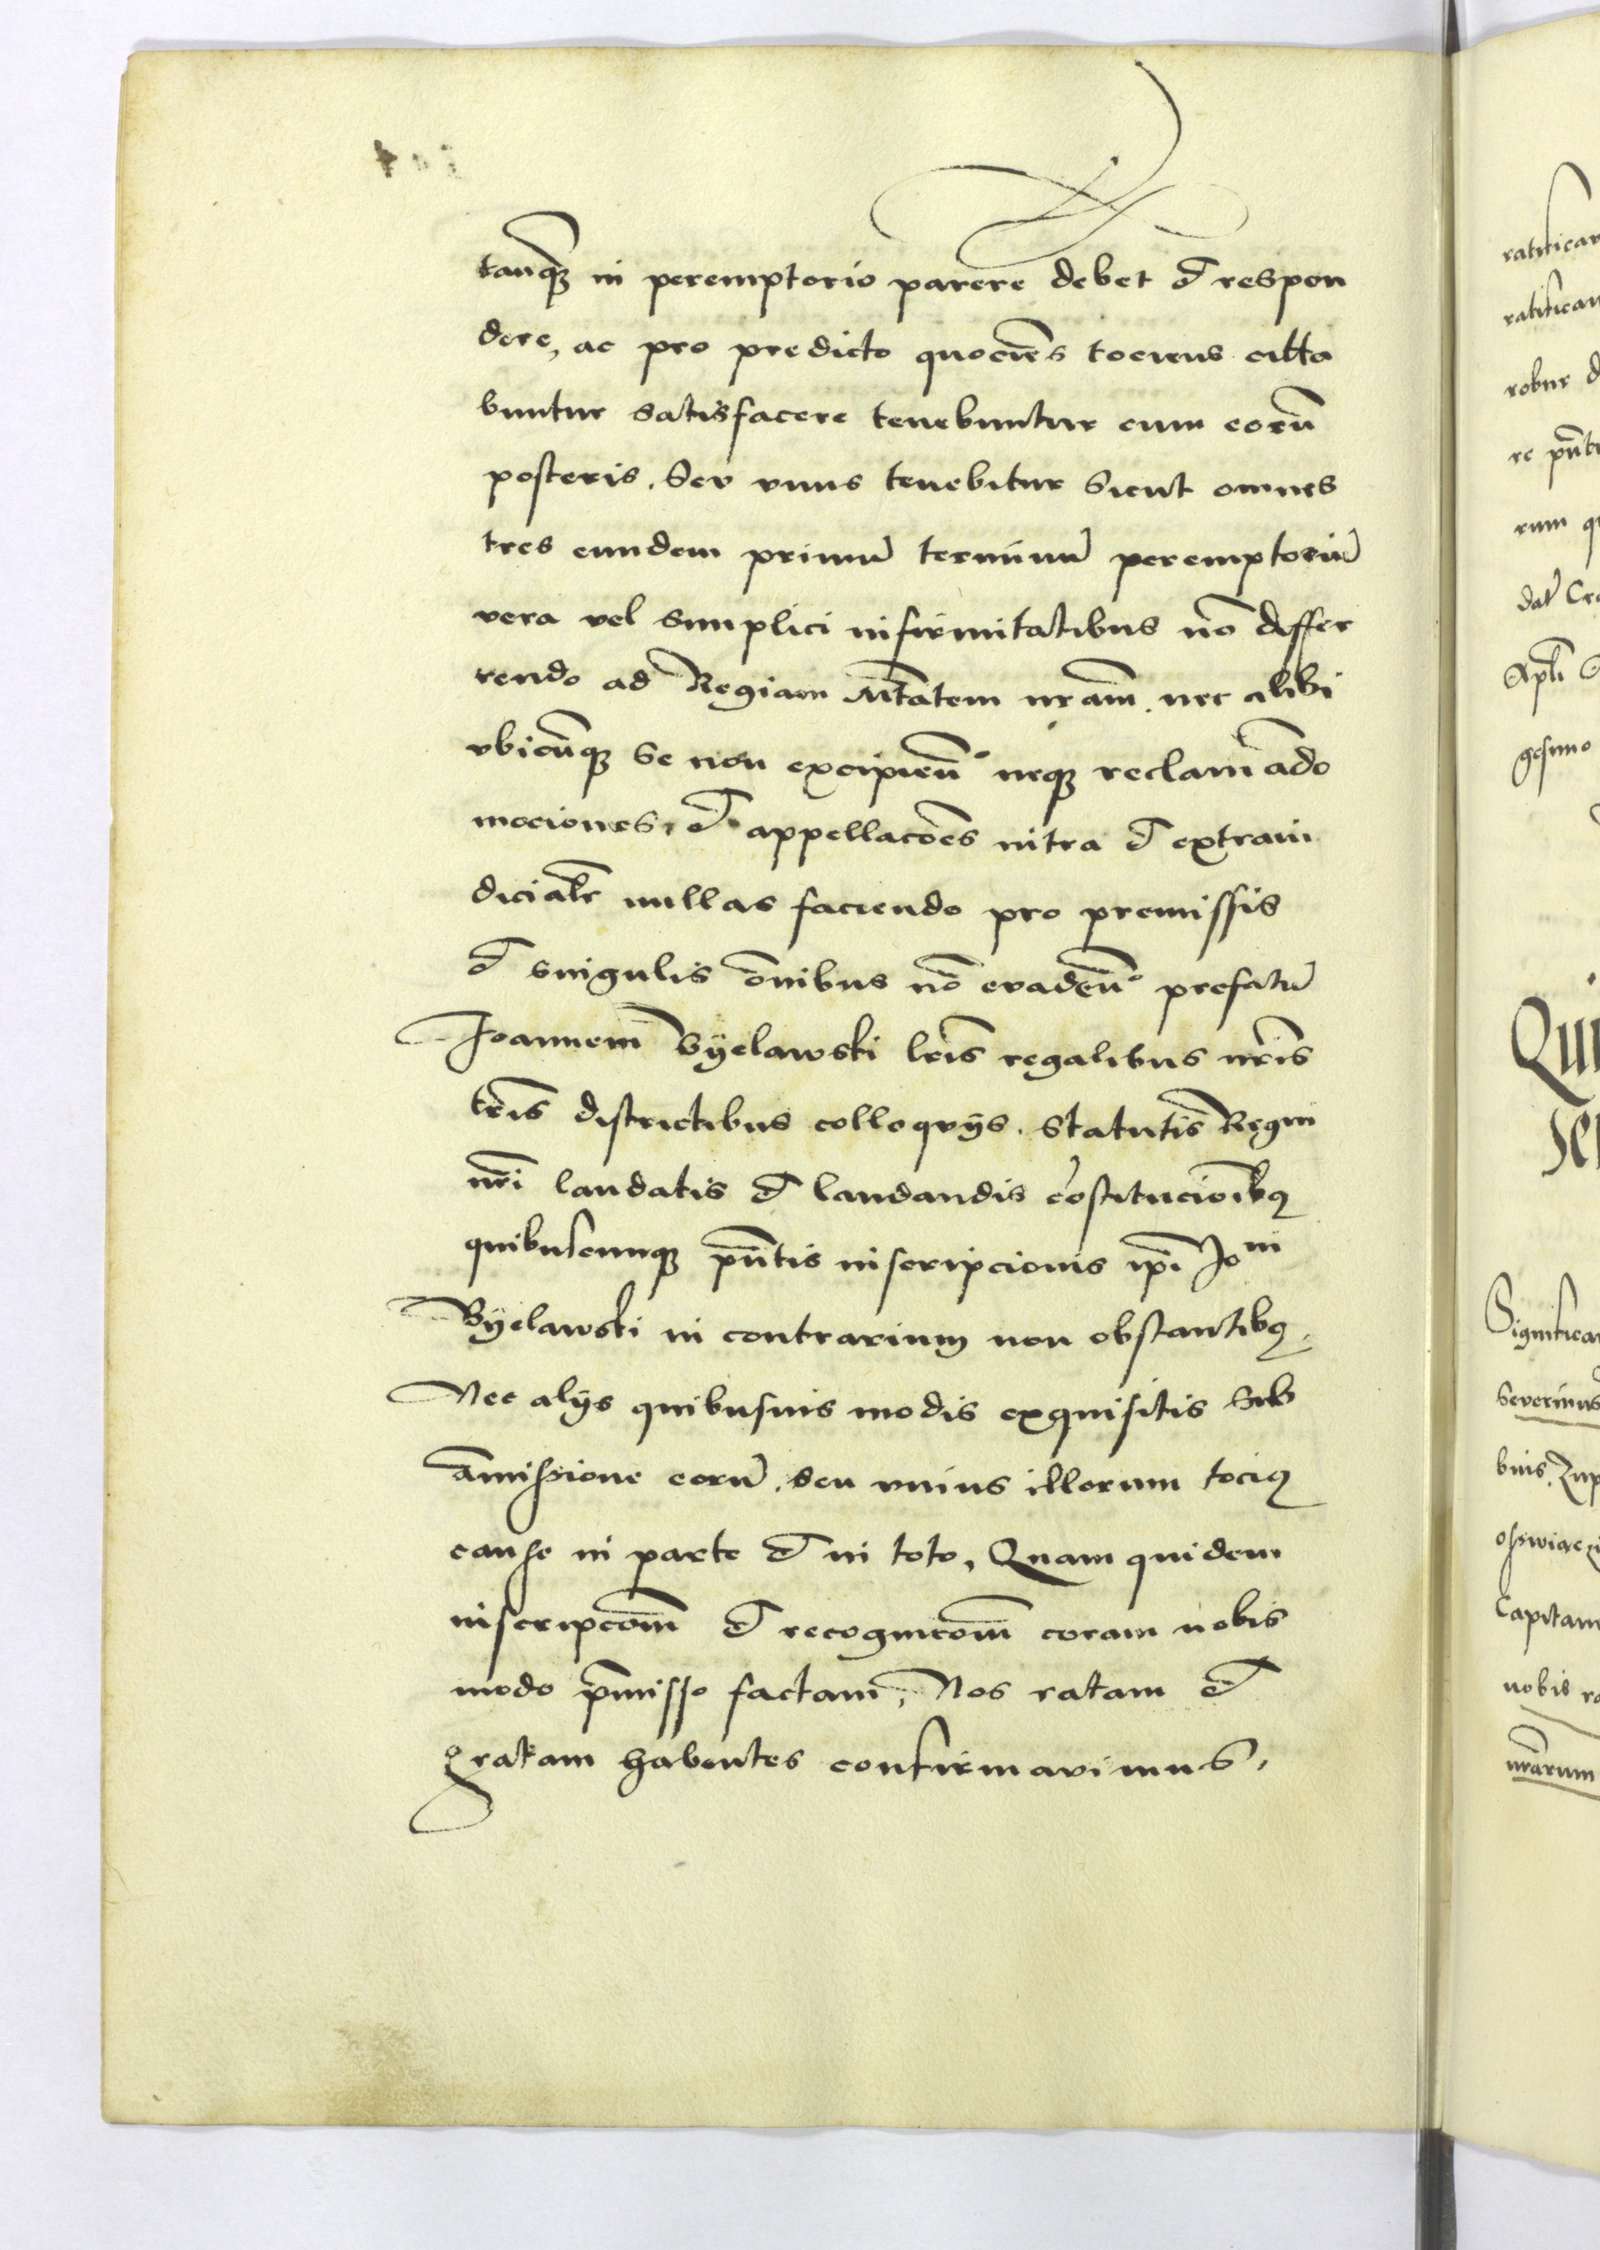 tanq̃ in peremptorio parere debet et respon
dere, ac pro predicto quociẽs tociens citta
buntur satisfacere tenebuntur cum eorũ
posteris. Seu unus tenebitur sicut omnes
tres eundem primũ terminũ peremptoriũ
vera vel simplici infirmitatibus nõ differ
rendo ad Regiam Mtãtem nrãm. nec alibi
vbicũq se non excipieñ neq reclamãdo
mociones, et appellacões intra et extraiu
diciałr nullas faciendo pro premissis
et singulis õnibus nõ evadeñ prefatũ
Joannem Byelawski lr̃is regalibus nr̃is
tr̃is districtibus colloquijs. Statutis Regni
nr̃i laudatis et laudandis cõstitucioĩbq
quibuscunq pñtis inscripcionis ip̃i Joni
Byelawski in contrarium non obstantibq.
Nec alijs quibusuis modis exquisitis Sub
amissione eorũ. seu vnius illorum tociq
cause in parte et in toto, Quam quidem
inscripcõm et recognicõm coram nobis
modo p̃misso factam, Nos ratam et
gratam habentes confirmavimus.
ratificar
ratifican
robur
re pñt
rum
dat̃ Cra
Ap̃li
gesimo
Qui
Significa
Severinus
bnis. Zup
Capitan
nobis
nrãrum